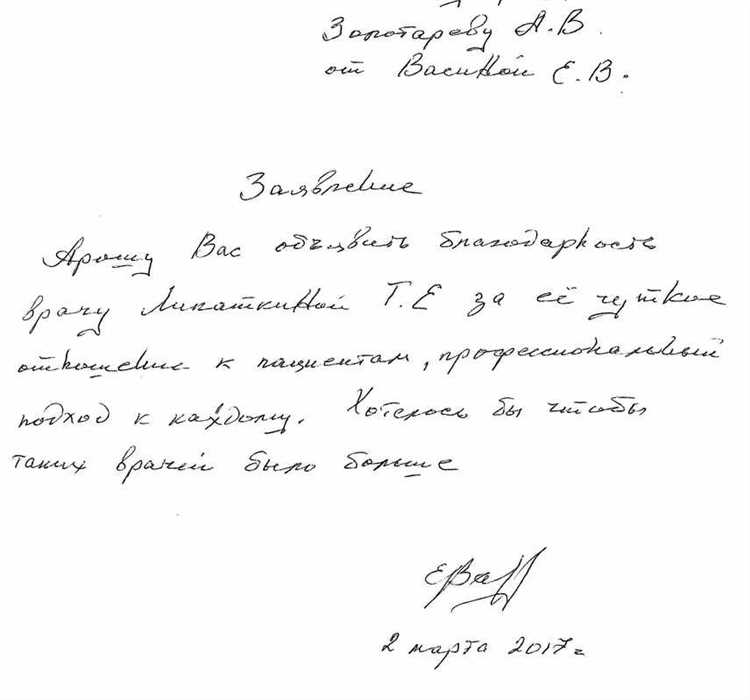 Золотареву А.В.
от Васиной Е.В.
Заявление
Прошу Вас объявить благодарность
врачу Липаткиной Т.Е за её чуткое
отношение к пациентам, профессиональный
подход к каждому. Хотелось бы чтобы
таких врачей было больше
2 марта 2017г